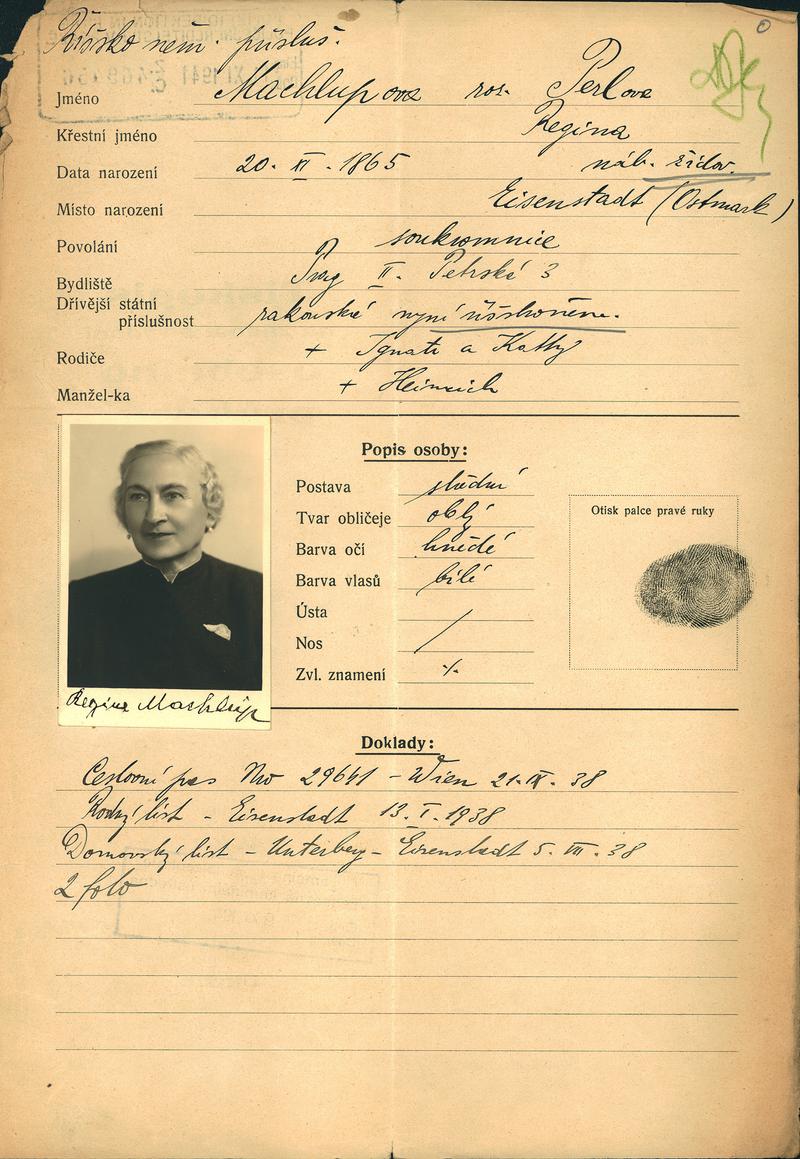 Říšsko něm. přísluš.
Jméno Machlupova roz. Perlova
Křestní jméno Regina
Data narození 20. XI. 1865 náb. židov.
Místo narození Eisenstadt (Ostmark)
Povolání soukromnice
Bydliště Prag II. Petrská 3
Dřívější státní
příslušnost rakouské nyní říšskoněm.
Rodiče + Ignatz a Kathy
Manžel-ka + Heinrich
Popis osoby:
Postava střední
Tvar obličeje oblý
Barva očí hnědé
Barva vlasů bílé
Ústa /
Nos
Zvl. znamení ·/.
Otisk palce pravé ruky
Regine Machlup
Doklady:
Cestovní pas No 29641 - Wien 21. IX. 38
Rodný list - Eisenstadt 13. I. 1938
Domovský list - Unterberg - Eisenstadt 5. VII. 38
2 foto